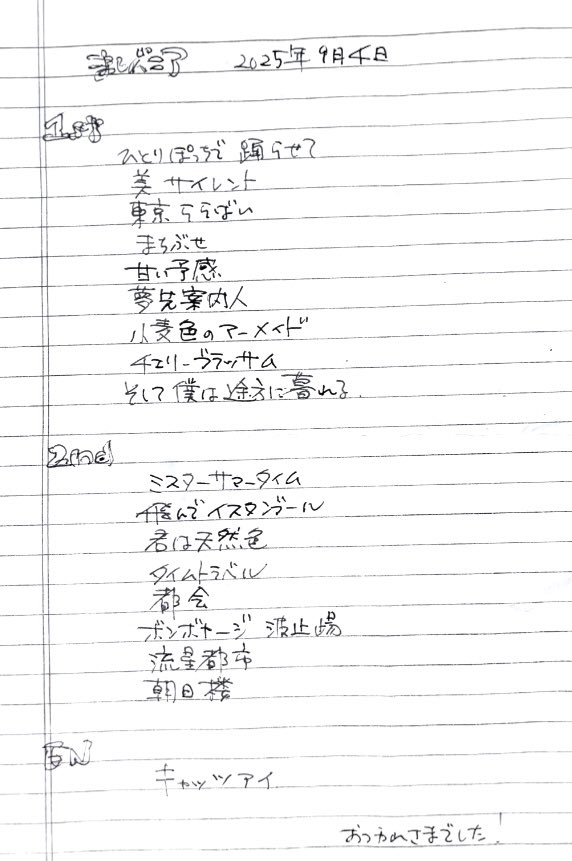 2025年9月4日
1st
ひとりぽっちで 踊らせて
美 サイレント
東京ららばい
まちぶせ
甘い予感
夢先案内人
小麦色のマーメイド
チェリーブラッサム
そして僕は途方に暮れる.
2nd
ミスターサマータイム
飛んでイスタンブール
君は天然色
タイムトラベル
都会
ボンボヤージ 波止場
流星都市
朝日楼
EN
キャッツアイ
おつかれさまでした!